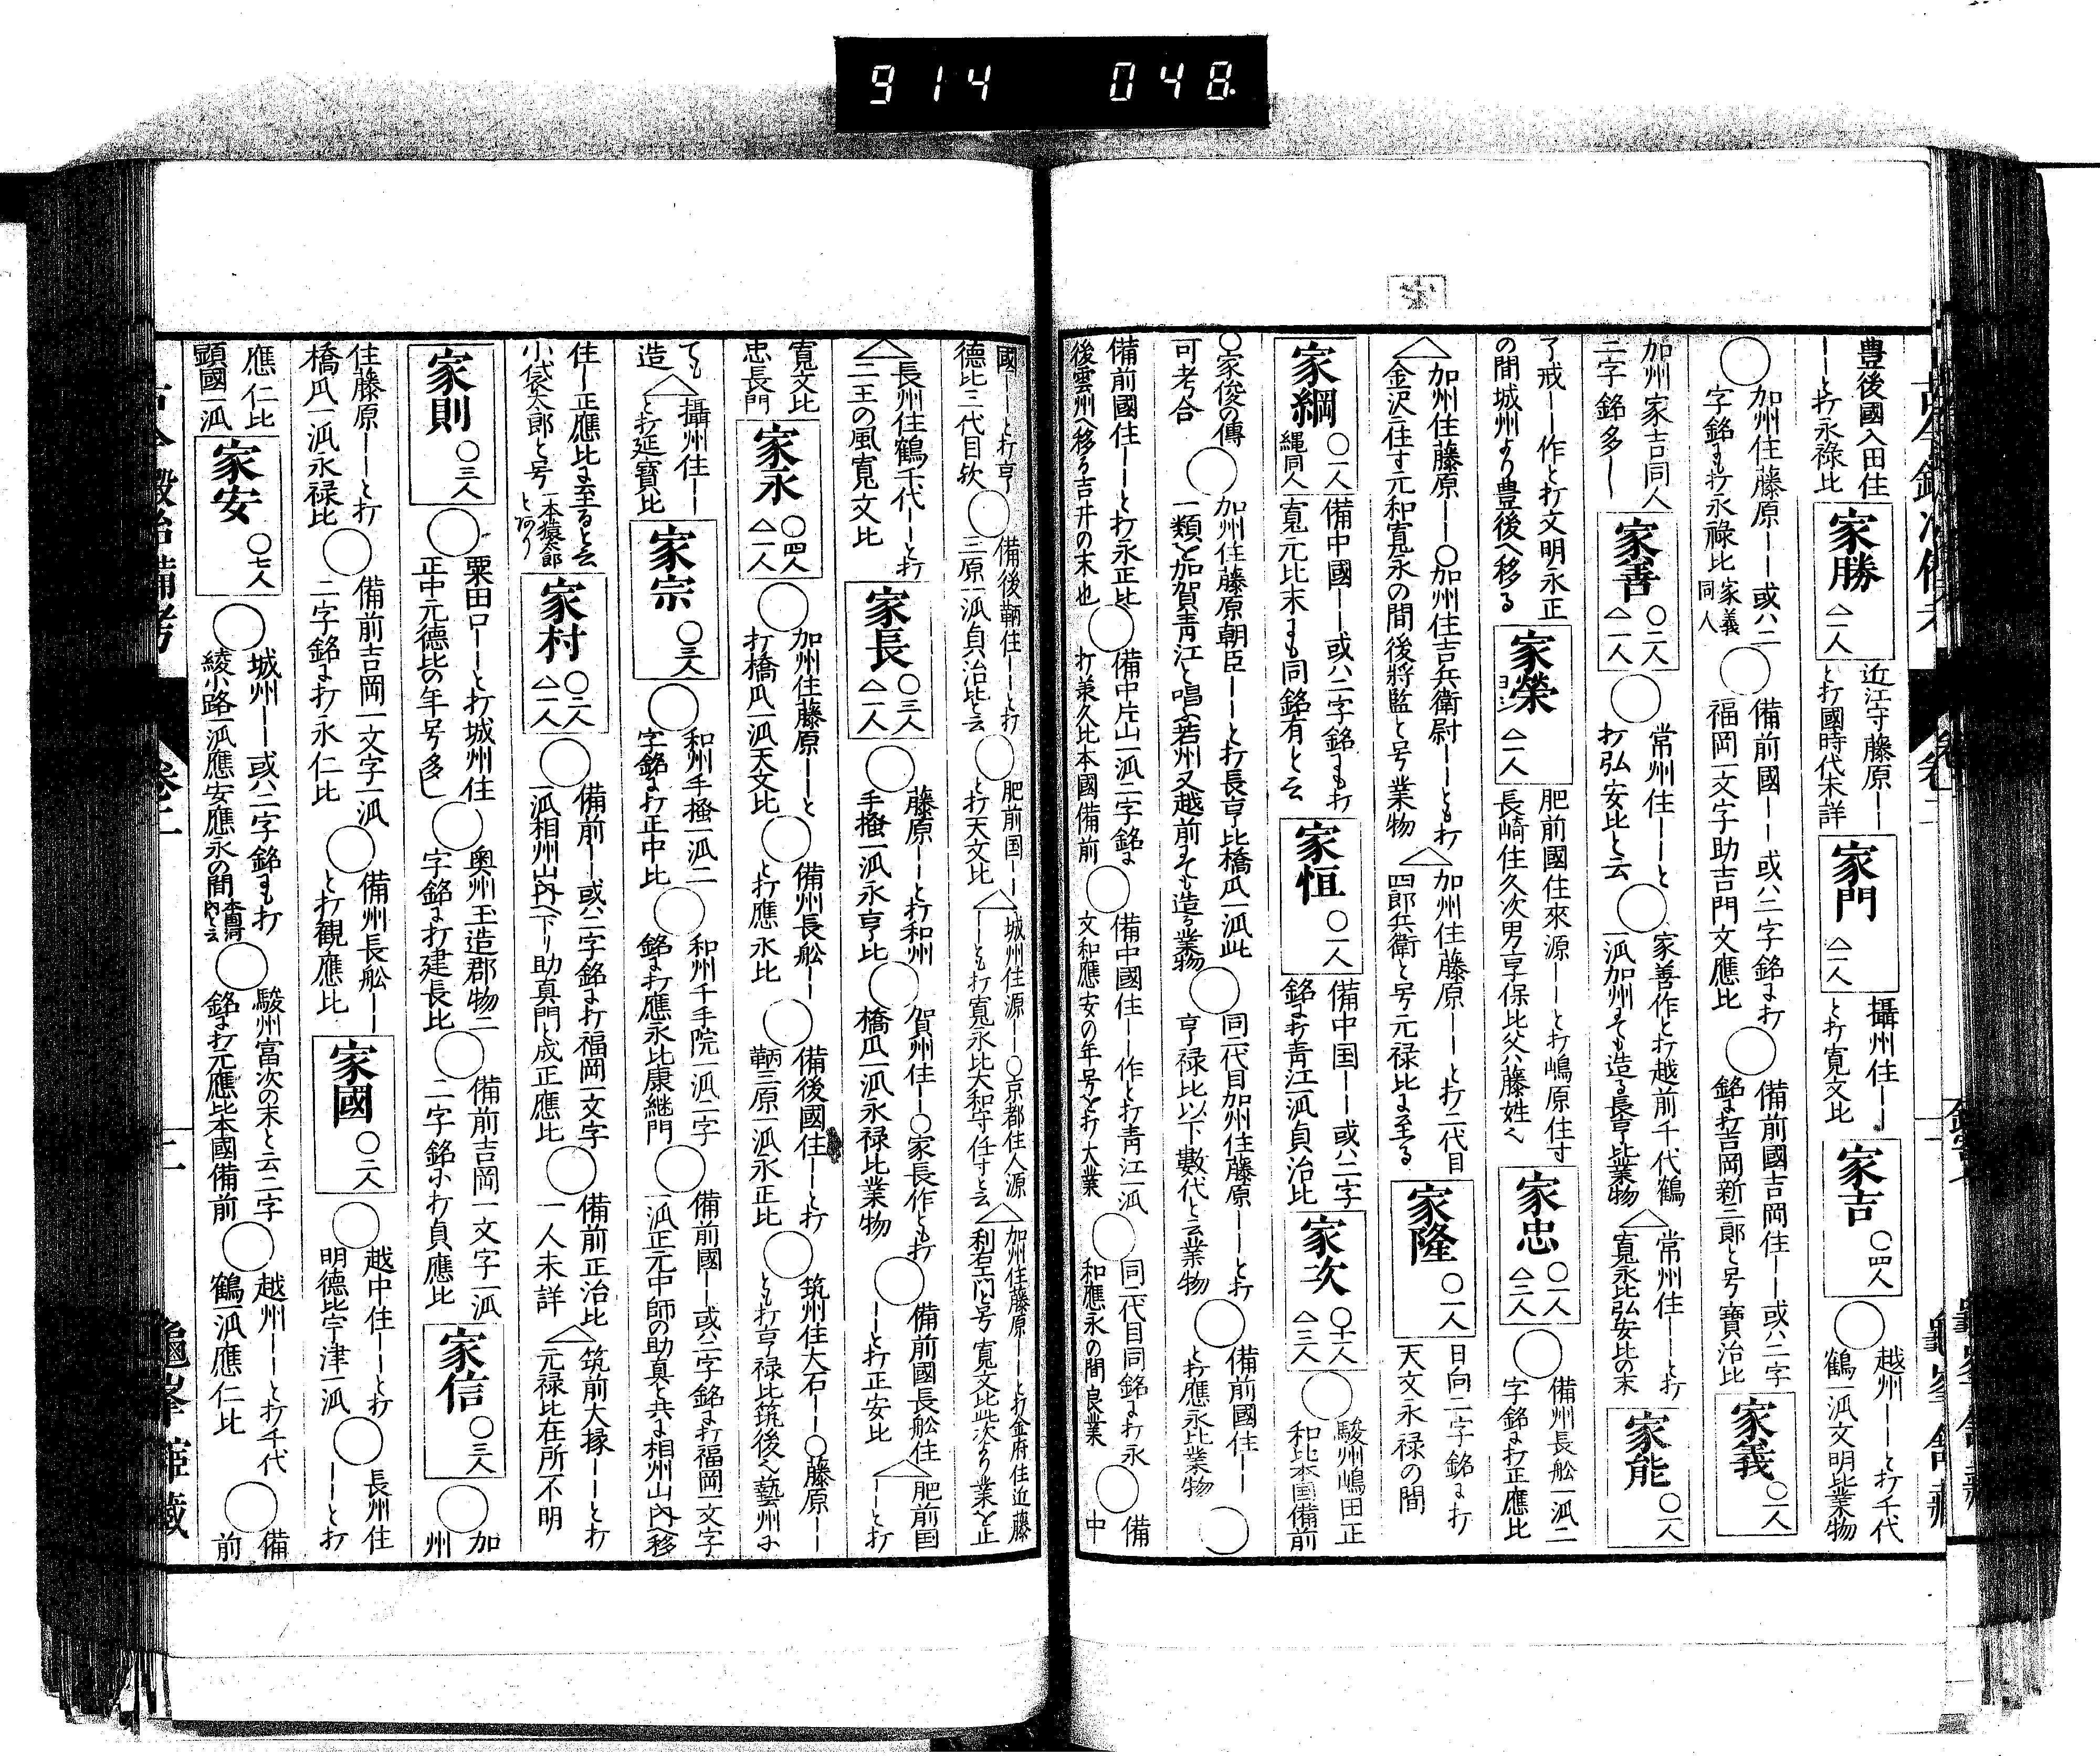 914 048
豊後國入田住
ーーと打永祿比
家勝 △一人
近江守藤原ーー
と打國時代未詳
家門 △一人
攝州住ーー
と打寛文比
家吉 ○四人
○越州ーーと打千代
鶴一派文明比業物
○加州住藤原ーー或ハ二
字銘にも打永祿比 家義同人
○備前國ーー或ハ二字銘に打
福岡一文字助吉門文應比
○備前國吉岡住ーー或ハ二字
銘に打吉岡新二郎と号寶治比
家義 ○一人
加州家吉同人
二字銘多し
家善 ○二人 △一人
○常州住ーーと
打弘安比と云
○家善作と打越前千代鶴
一派加州にても造る長亨比業物
△常州住ーーと打
寛永比弘安比の末
家能 ○一人
了戒ーー作と打文明永正
の間城州より豊後へ移る
家榮 ヨシ △一人
肥前國住來源ーーと打嶋原住寸
長崎住久次男享保比父ハ藤姓へ
家忠 ○一人 △三人
○備州長舩一派二
字銘に打正應比
△加州住藤原ーー○加州住吉兵衛尉ーーとも打
金沢住す元和寛永の間後將監と号業物
△加州住藤原ーーと打二代目
四郎兵衛と号元禄比に至る
家隆 ○一人
日向二字銘に打
天文永禄の間
家綱 ○一人 縄同人
備中國ーー或ハ二字銘にも打
寛元比末にも同銘有と云
家恒 ○一人
備中国ーー或ハ二字
銘に打青江一派貞治比
家次 ○十一人 △三人
○駿州嶋田正
和比本国備前
○家俊の傳
可考合
○加州住藤原朝臣ーーと打長亨比橋爪一派此
一類を加賀青江と唱ふ若州又越前にても造る業物
○同二代目加州住藤原ーーと打
亨禄比以下數代と云業物
○備前國住ーー
と打應永比業物
○
備前國住ーーと打永正比
後雲州へ移る吉井の末也
○備中片山一派二字銘に
打兼久比本國備前
○備中國住ーー作と打青江一派
文和應安の年号を打大業
○同二代目同銘に打永
和應永の間良業
○備
中
國ーーと打亨
德比三代目欤
○備後鞆住ーーと打
三原一派貞治比と云
○肥前国ーー
と打天文比
△城州住源ーー○京都住人源
ーーとも打寛永比大和守任寸と云
△加州住藤原ーーと打金府住近藤
利右エ門と号寛文比此次より業を正
△長州住鶴千代ーーと打
二王の風寛文比
家長 ○三人 △一人
○藤原ーーと打和州
手掻一派永亨比
○賀州住ーー○家長作とも打
橋爪一派永禄比業物
○備前國長舩住
ーーと打正安比
△肥前国
ーーと打
寛文比
忠長門
家永 ○四人 △一人
○加州住藤原ーーと
打橋爪一派天文比
○備州長舩ーー
と打應永比
○備後國住ーーと打
鞆三原一派永正比
○筑州住大石ーー○藤原ーー
とも打亨禄比筑後へ藝州に
ても
造
△攝州住ーー
と打延寶比
家宗 ○三人
○和州手掻一派二
字銘に打正中比
○和州千手院一派二字
銘に打應永比康継門
○備前國ーー或ハ二字銘に打福岡一文字
一派正元中師の助真と共に相州山内へ移
住ーー正應比に至ると云
小袋太郎と号 一本猿太郎とあり
家村 ○二人 △一人
○備前ーー或ハ二字銘に打福岡一文字
一派相州山内へ下り助真門と成正應比
○備前正治比
一人未詳
△筑前大掾ーーと打
元禄比在所不明
家則 ○三人
○粟田口ーーと打城州住
正中元德比の年号多し
○奥州玉造郡物二
字銘に打建長比
○備前吉岡一文字一派
二字銘に打貞應比
家信 ○三人
○加
州
住藤原ーーと打
橋爪一派永禄比
○備前吉岡一文字一派
二字銘に打永仁比
○備州長舩ーー
と打観應比
家國 ○二人
○越中住ーーと打
明德比宇津一派
○長州住
ーーと打
應仁比
顕國一派
家安 ○七人
○城州ーー或ハ二字銘にも打
綾小路一派應安應永の間 本国河内と云
○駿州富次の末と云二字
銘に打元應比本國備前
○越州ーーと打千代
鶴一派應仁比
○備
前
古今鍛冶備考 卷二 龜峯舘藏